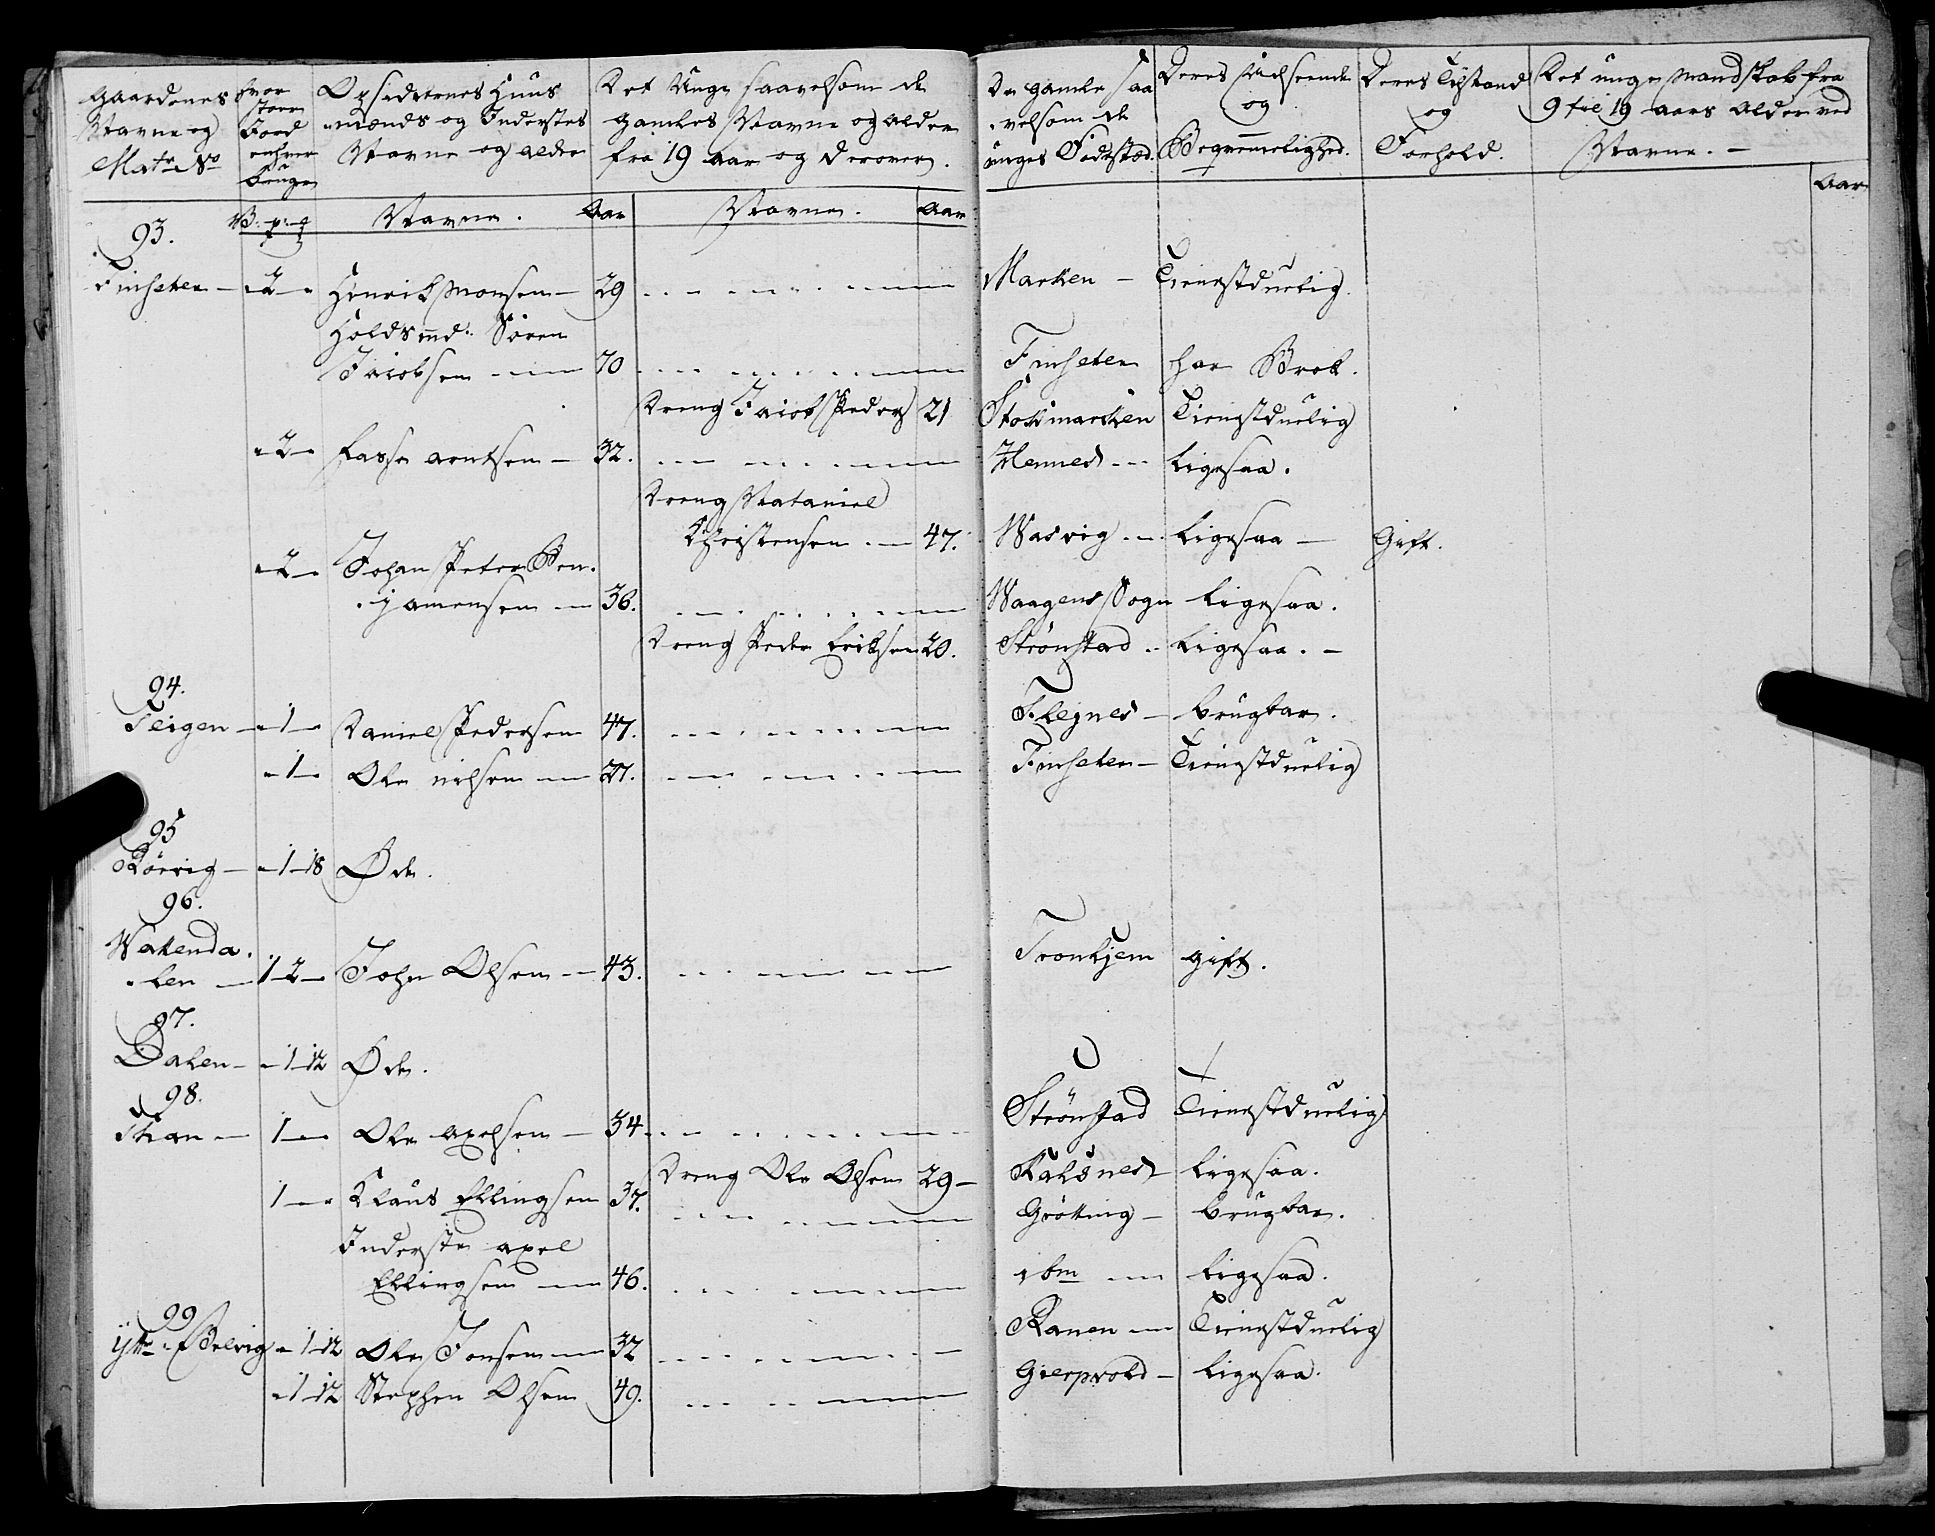 Gaardenes
Navne og
Matr No
Hvor
stor
Jord
enhver
bruger
Opsiddernes Huus
mænds og Inderstes
Navne og alder
Det Unge saavelsom de
gamles Navne og alder
fra 19 aar og derover.
De gamle saa
velsom de
unges Fødestæd.
Deres Udseende
og
Beqvemmelighed.
Deres Tilstand
og
Forhold.
Det unge Mandskab fra
9 til 19 aars Alder ved
Navne. -
V: p: Navne. Aar Navne. Aar Aar
93.
Finseten - 2 - Henrich Monsen - 29 Marken - Tienestduelig.
Holdsmd: Søren
Jacobsen 70 Finseten har Brok.
Dreng Jacob Peders 21 Stokmarken Tienestduelig
- 2 - Lasse arntsen - 32. Hennes - ligesaa.
Dreng Nataniel
Christensen - 47. Wasvig - ligesaa - Gift.
- 2 - Johan Peter Ben.
jamensen - 36. Waagens Sogn ligesaa.
Dreng Peder Erichsen 20. Strønstad - ligesaa. -
94.
Teigen - 1 - Daniel Pedersen 47. Flejnes - brugbar.
- 1 - Ole nilsen - 27. Finseten - Tienestduelig
95
Rørvig - 1 - 18 Øde.
96.
Watenda.
len - 1 - 2 - John Olsen - 43. Tronhjem gift.
97.
Dalen - 1 - 12 Øde.
98.
1 - Ole axelsen - 34. Strønstad Tienestduelig
Dreng Ole Olsen 29 - ligesaa.
1 - Klaus Ellingsen 37. Grøtting - brugbar.
Inderste axel
Ellingsen - 46. ibm - ligesaa.
99
Ytr - Pølvig - 1 - 12 Ole Jonsen 32 Ranen - Tienestduelig
- 1 - 12 Stephen Olsen 49. ligesaa.